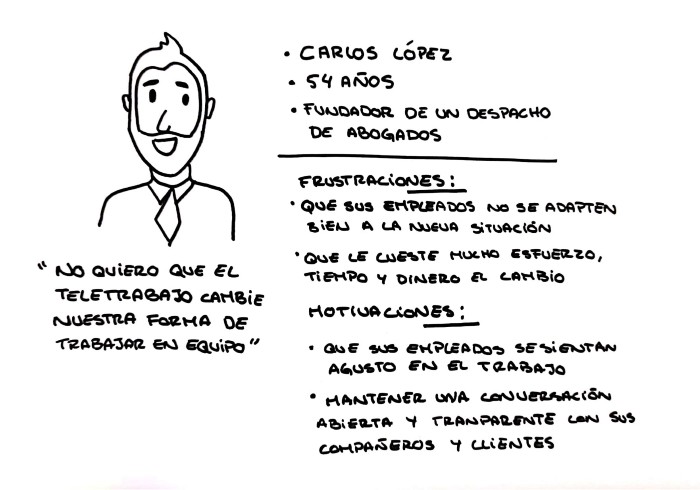 • CARLOS LÓPEZ
• 54 AÑOS
• FUNDADOR DE UN DESPACHO
DE ABOGADOS
FRUSTRACIONES:
• QUE SUS EMPLEADOS NO SE ADAPTEN
BIEN A LA NUEVA SITUACIÓN
• QUE LE CUESTE MUCHO ESFUERZO,
TIEMPO Y DINERO EL CAMBIO
MOTIVACIONES:
• QUE SUS EMPLEADOS SE SIENTAN
AGUSTO EN EL TRABAJO
• MANTENER UNA CONVERSACIÓN
ABIERTA Y TRANPARENTE CON SUS
COMPAÑEROS Y CLIENTES
"NO QUIERO QUE EL
TELETRABAJO CAMBIE
NUESTRA FORMA DE
TRABAJAR EN EQUIPO"